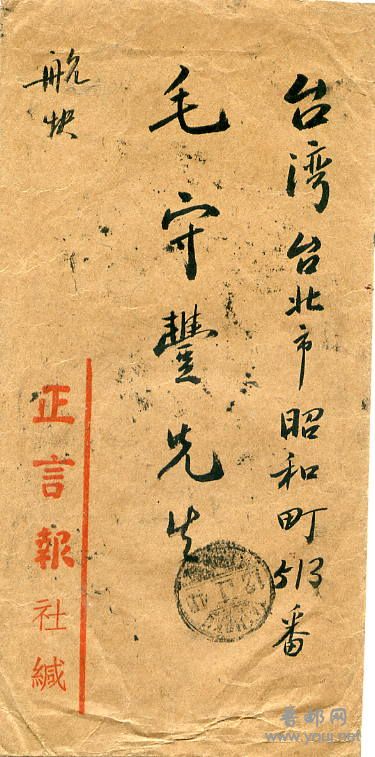 台湾台北市昭和町513番
毛守豐先生
航快
正言報社緘
www.youj.net